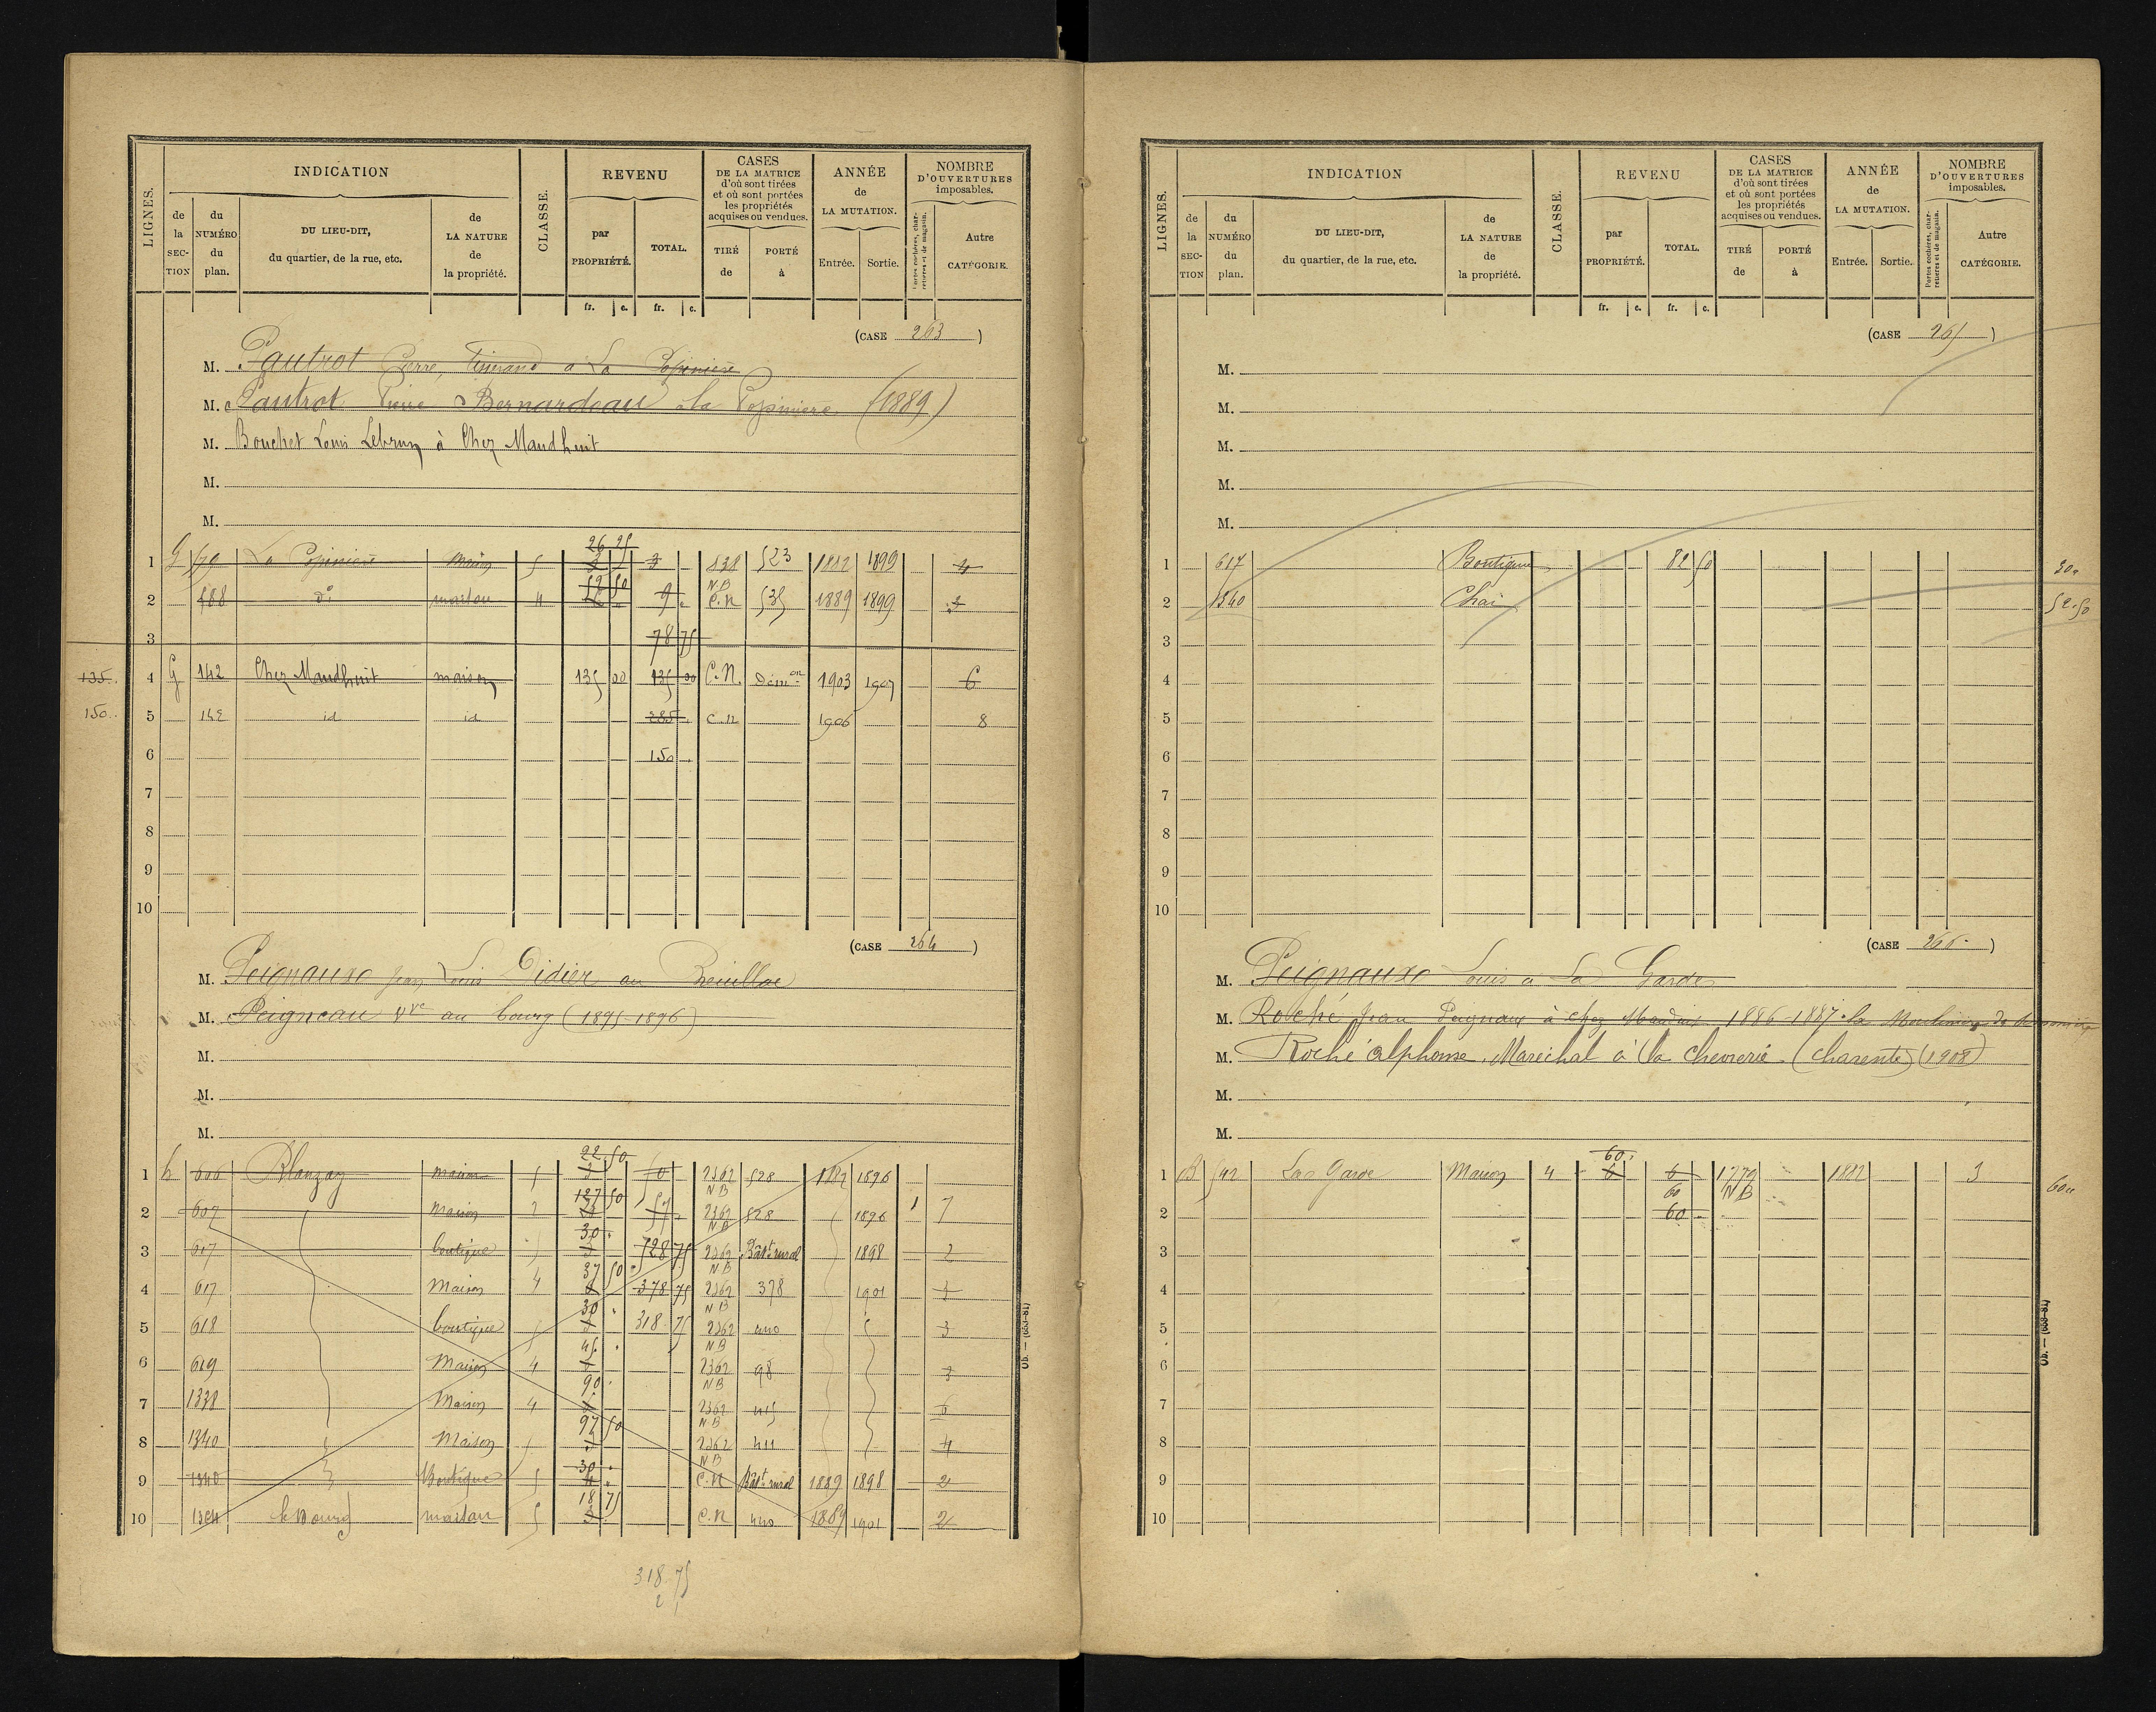 LIGNES.
INDICATION
de la SECTION
du NUMÉRO du plan.
DU LIEU-DIT, du quartier, de la rue, etc.
de LA NATURE de la propriété.
CLASSE.
REVENU
par PROPRIÉTÉ.
TOTAL.
fr. c. fr. c.
CASES DE LA MATRICE d'où sont tirées et où sont portées les propriétés acquises ou vendues.
TIRÉ de
PORTÉ à
ANNÉE de LA MUTATION.
Entrée. Sortie.
NOMBRE D'OUVERTURES imposables.
Portes cochères, charretières et de magasin.
Autre CATÉGORIE.
(CASE 263)
M. Pautrot Pierre, à La Popinière
M. Pautrot Pierre Bernardeau à la Popinière (1889)
M. Bouchet Louis Lebrun à Chez Maudhuit
M.
M.
26 25
1 G La Popinière Maison 5 3 523 1882 1899 4
52 50 N B
2 488 d° maison 4 9 C.N 535 1889 1899 3
3 78 75
135. 4 G 142 Chez Maudhuit maison 135 00 135 00 C.N. Démon 1903 1907 6
150.. 5 142 id id 285 C.N 1906 8
6 150
7
8
9
10
(CASE 264)
M. Peignaux Jean Louis Didier au Breuillac
M. Peigneau Vve au bourg (1895-1896)
M.
M.
M.
22 50
1 h 606 Blanzay maison 5 2362 528 1882 1896
127 50 N B
2 607 Maison 2 57 2362 528 1896 1 7
30 N B
3 617 boutique 5 728 75 2362 Bât. rural 1898 2
37 50 N B
4 617 Maison 4 378 75 2362 378 1901
30 N B
5 618 boutique 318 75 2362 440 3
45 N B
6 619 Maison 4 2362 98 3
90 N B
7 1338 Maison 4 2362 415 6
97 50 N B
8 1340 Maison 2362 411 4
30 N B
9 1340 Boutique 5 4 C.N Bât. rural 1889 1898 2
18 75
10 le Bourg maison 5 3 C.N 440 1889 1901 2
318 75
Ob. — (658-81)
LIGNES.
INDICATION
de la SECTION
du NUMÉRO du plan.
DU LIEU-DIT, du quartier, de la rue, etc.
de LA NATURE de la propriété.
CLASSE.
REVENU
par PROPRIÉTÉ.
TOTAL.
fr. c. fr. c.
CASES DE LA MATRICE d'où sont tirées et où sont portées les propriétés acquises ou vendues.
TIRÉ de
PORTÉ à
ANNÉE de LA MUTATION.
Entrée. Sortie.
NOMBRE D'OUVERTURES imposables.
Portes cochères, charretières et de magasin.
Autre CATÉGORIE.
(CASE 265)
M.
M.
M.
M.
M.
1 617 Boutique 82 50 30
2 1340 Chai 52.50
3
4
5
6
7
8
9
10
(CASE 266)
M. Peignaux Louis à La Garde
M. Roché Jean Peignaux à chez 1886-1887
M. Roché Alphonse, Maréchal à la Chevrerie (Charente) (1908)
M.
M.
60
1 B 542 La Garde Maison 4 6 6 1779 1882 3 60
60 N B
2 60
3
4
5
6
7
8
9
10
Ob. — (658-81)